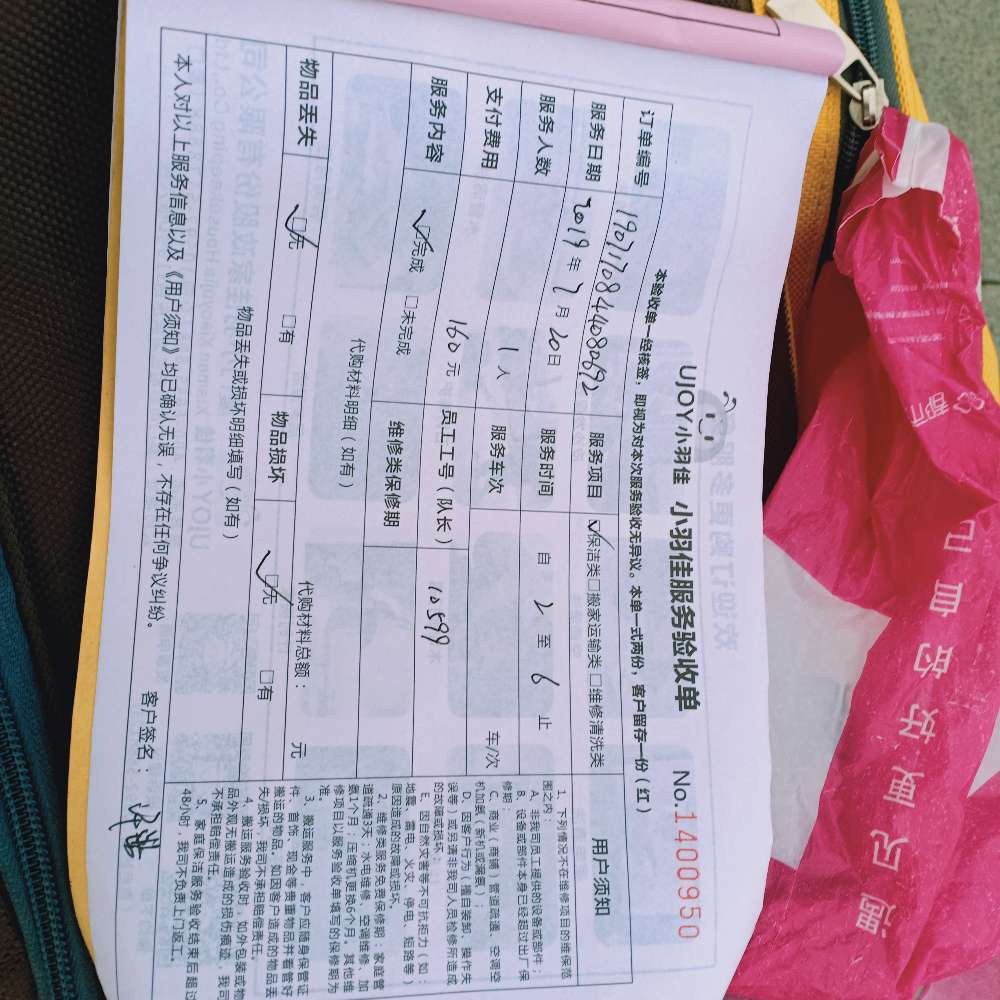 UJOY小羽佳 小羽佳服务验收单 No.1400950
本验收单一经核签，即视为对本次服务验收无异议。本单一式两份，客户留存一份（红）
订单编号 1907170844080692 服务项目 ☑保洁类□搬家运输类□维修清洗类
服务日期 2019年7月20日 服务时间 自 2 至 6 止
服务人数 1人 服务车次 车/次
支付费用 160元 员工工号（队长） 10599
服务内容 ☑完成 □未完成 维修类保修期
代购材料明细（如有） 代购材料总额： 元
物品丢失 ☑无 □有 物品损坏 ☑无 □有
物品丢失或损坏明细填写（如有）
本人对以上服务信息以及《用户须知》均已确认无误，不存在任何争议纠纷。 客户签名：
用户须知
1、下列情况不在维修项目的维保范
围之内：
A、非我司员工提供的设备或部件；
B、设备或部件本身已经超过出厂保
修期：
C、商业（商铺）管道疏通、空调空
机加氨（新机或漏氨）；
D、因客户行为（擅自装卸、操作失
误等）或另请非我司人员检修所造成
的故障或损坏；
E、因自然灾害等不可抗拒力（如：
地震、雷电、火灾、停电、短路等）
原因造成的故障或损坏。
2、维修类服务免费保修期：家庭管
道疏通3天；水电维修、空调维修、加
氨1个月；压缩机更换6个月。其他维
修项目以服务验收单填写的保修期为
准。
3、搬运服务中，客户应随身保管证
件、首饰、现金等贵重物品并看管好
搬运的物品，如因客户造成的物品丢
失/损坏，我司不承担赔偿责任。
4、搬运服务验收时，如外包装或物
品外观无搬运造成的损伤痕迹，我司
不承担赔偿责任。
5、家庭保洁服务验收结束后超过
48小时，我司不负责上门返工。
遇见更好的自己
都市